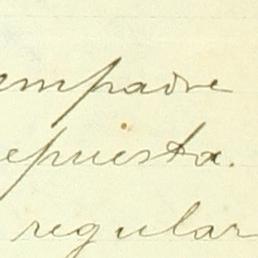 empadre
epuesta.
regular